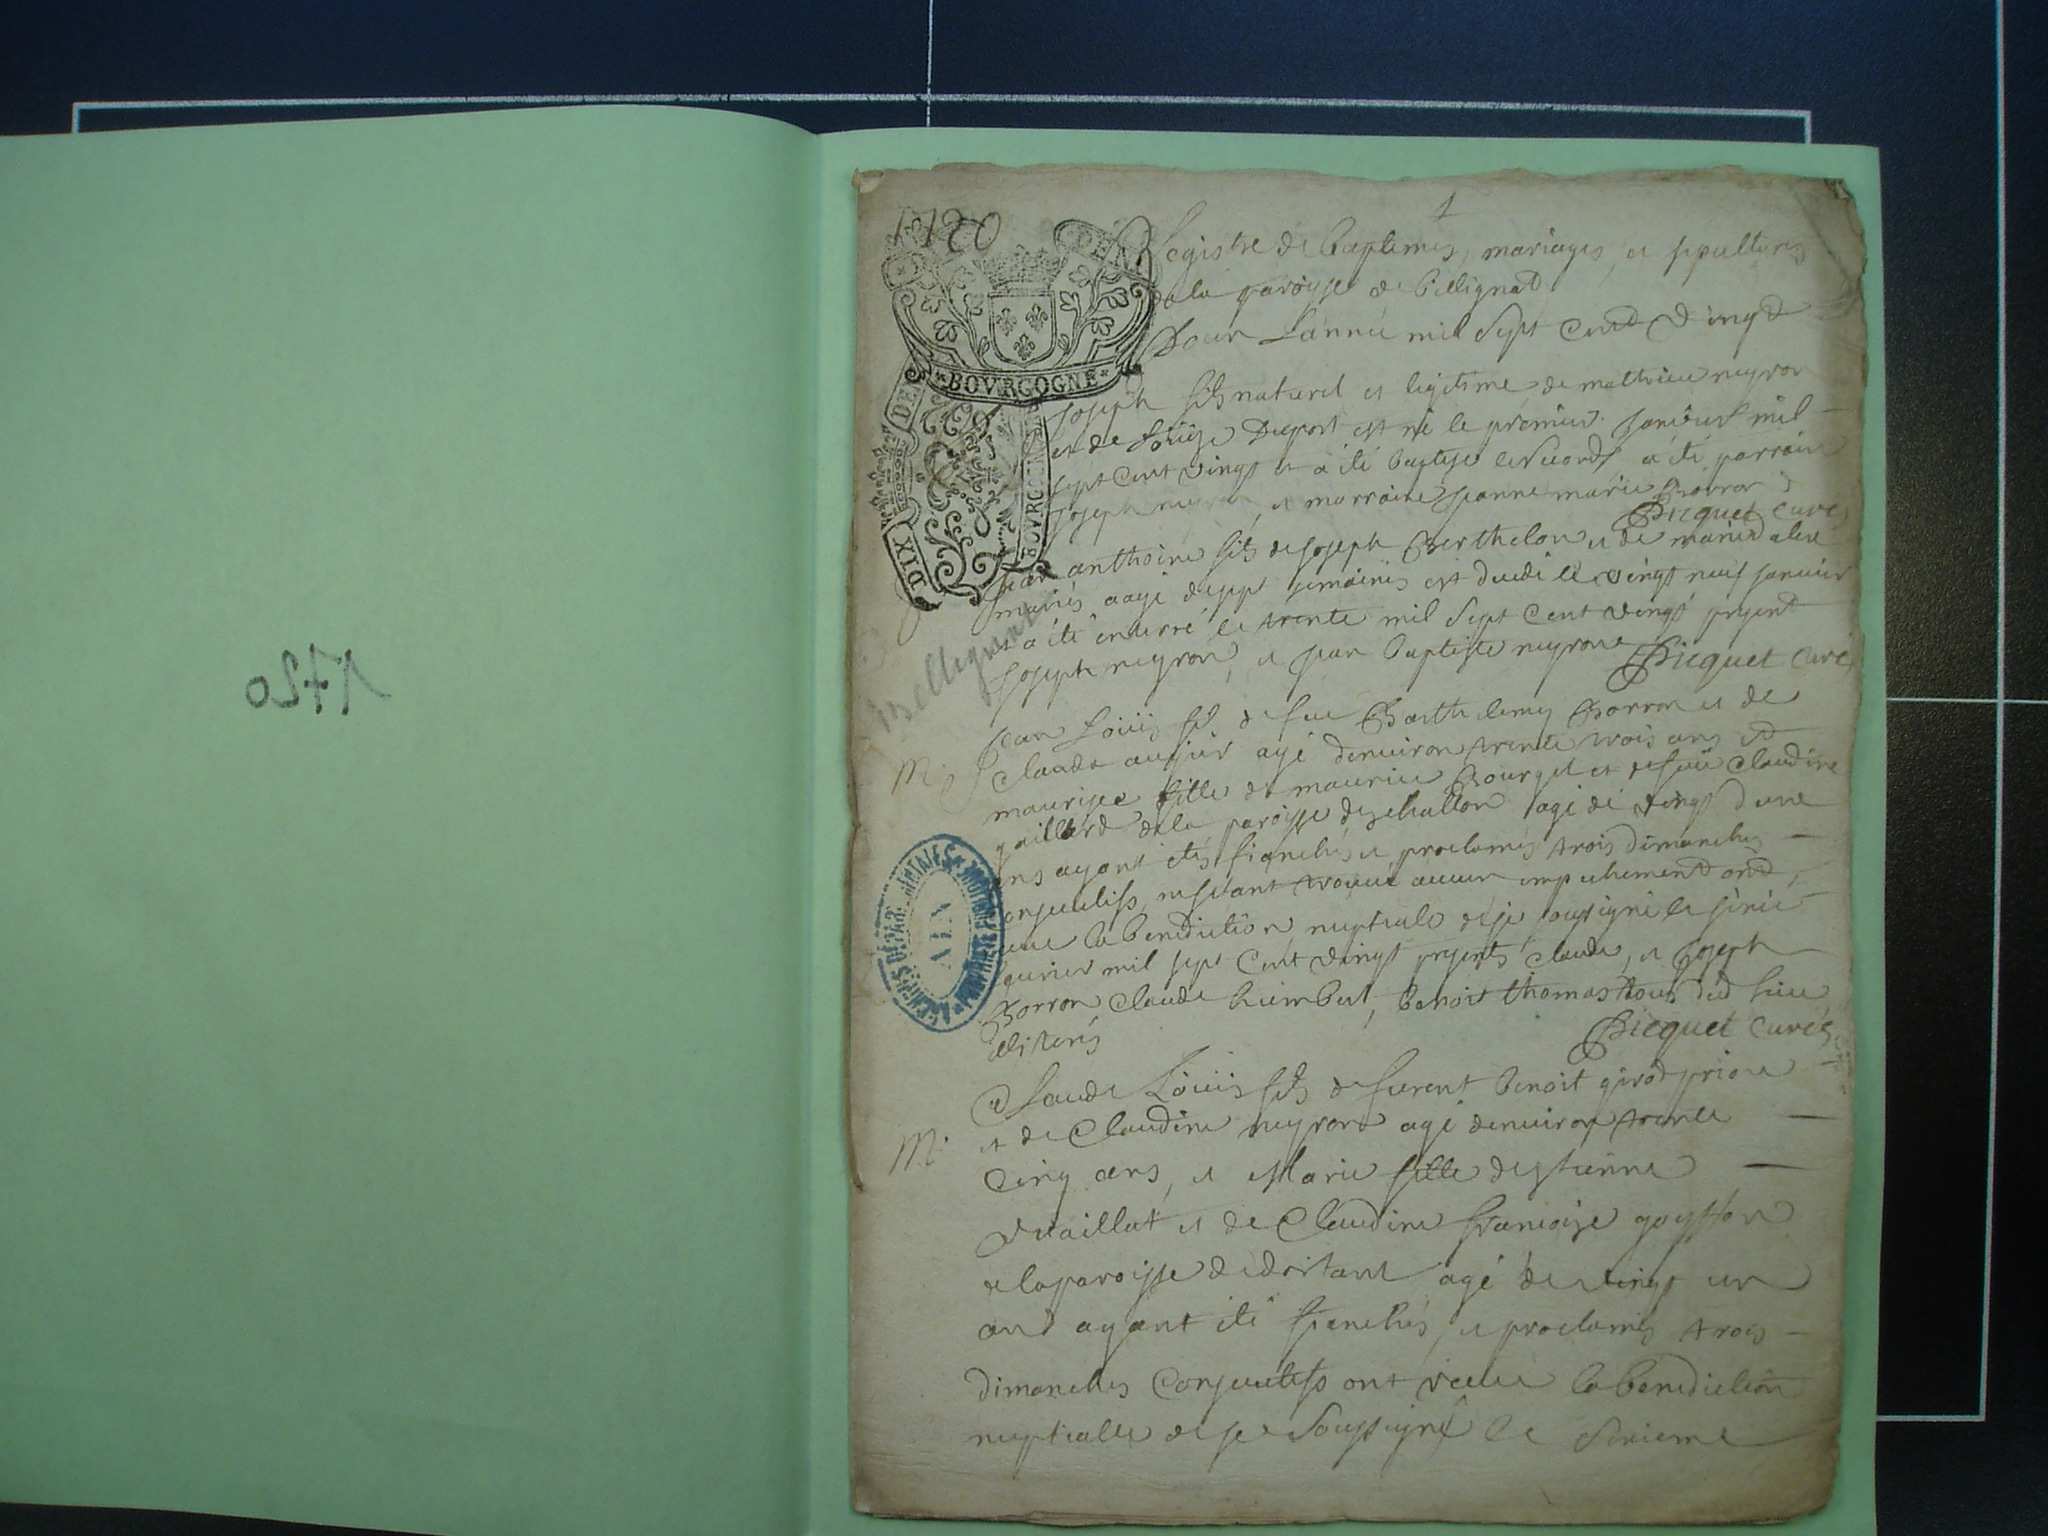 1720
1720
1
Registre de baptemes, mariages, et sepultures
de la paroisse de bellignat
Pour L'année mil sept cent vingt
BOVRGOGNE
DIX DEN
Joseph fils naturel et legitime de mathieu neyron
et de Loüise Duport est né le premier janvier mil
sept cent vingt et a été baptisé le second, a été parrain
joseph neyron, et marraine jeanne marie Borron
Picquet curé
jean anthoine fils de joseph Berthelon et de marie
mariés aagé de sept semaines est decedé le vingt neuf janvier
et a été enterré le trente mil sept cent vingt present
joseph neyron, et jean baptiste neyron Picquet curé
Bellignat
M.
Jean Loüis fils de feu Barthelemy Borron et de
Claude agé denviron trente trois ans et
maurise fille de maurice Bourget et de feüe Claudine
gaillard de la paroisse agé de vingt d'une
ans ayant etés fianchés et proclamés trois dimanches
consecutifs, ne setant trouvé aucun empechement ont
receu la benediction nuptiale de je soussigné le
mil sept cent vingt presents claude, et joseph
Borron, claude humbert, benoit thomas tous
illiterés
Picquet curé
ARCHIVES DEPARTEMENTALES PROPRIETE PUBLIQUE
AIN
M.
Claude Loüis fils de furent benoit girod prione
et de Claudine neyron agé denviron trente
Cinq ans, et Marie fille destienne
Vuaillat et de Claudine françoise
de la paroisse de dortant agé de vingt un
an ayant été fianchés, et proclamés trois
dimanches consecutifs ont receu la benediction
nuptialle de je soussigné le